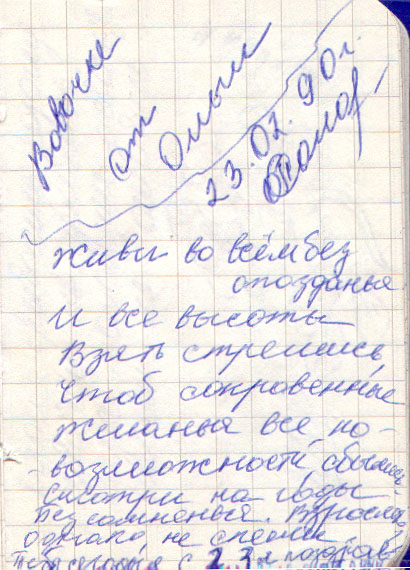 Вовочке
от
Ольги
23.02.90г.
Живи во всём без
опозданья
И все высоты
Взять стремись,
Чтоб сокровенные
Желанья все по-
возможности сбылись
Смотри на годы
Без сомненья. Взрослей
однако, не спеши
Тебя сегодня с 23 м поздрав